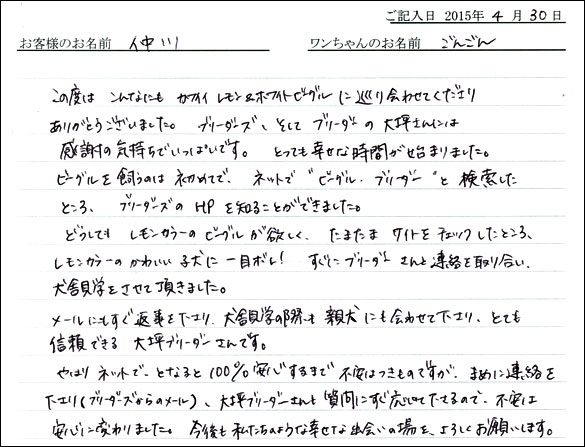 ご記入日 2015年 4 月 30 日
お客様のお名前 仲川 ワンちゃんのお名前 ごんごん
この度は こんなにも カワイイ レモン&ホワイトビーグル に巡り合わせてくださり
ありがとうございました。 ブリーダーズ、そして ブリーダー の 大坪さんには
感謝の気持ちでいっぱいです。 とっても幸せな時間が始まりました。
ビーグルを飼うのは 初めてで、 ネットで "ビーグル・ブリーダー" と 検索した
ところ、 ブリーダーズの HP を知ることができました。
どうしても レモンカラーの ビーグル が欲しく、 たまたま サイトを チェックしたところ、
レモンカラーの かわいい 子犬に 一目ボレ! すぐにブリーダー さんと連絡を取り合い、
犬舎見学をさせて頂きました。
メールにもすぐ返事を下さり、犬舎見学の際も 親犬 にも会わせて下さり、とても
信頼できる 大坪ブリーダーさんです。
やはり ネットで、となると 100% 安心するまで 不安はつきものですが、まめに連絡を
下さり(ブリーダーズからのメール)、大坪ブリーダーさんも 質問にすぐ応じて下さるので、不安は
安心に変わりました。 今後も 私たちのような幸せな出会いの場を、よろしくお願いします。